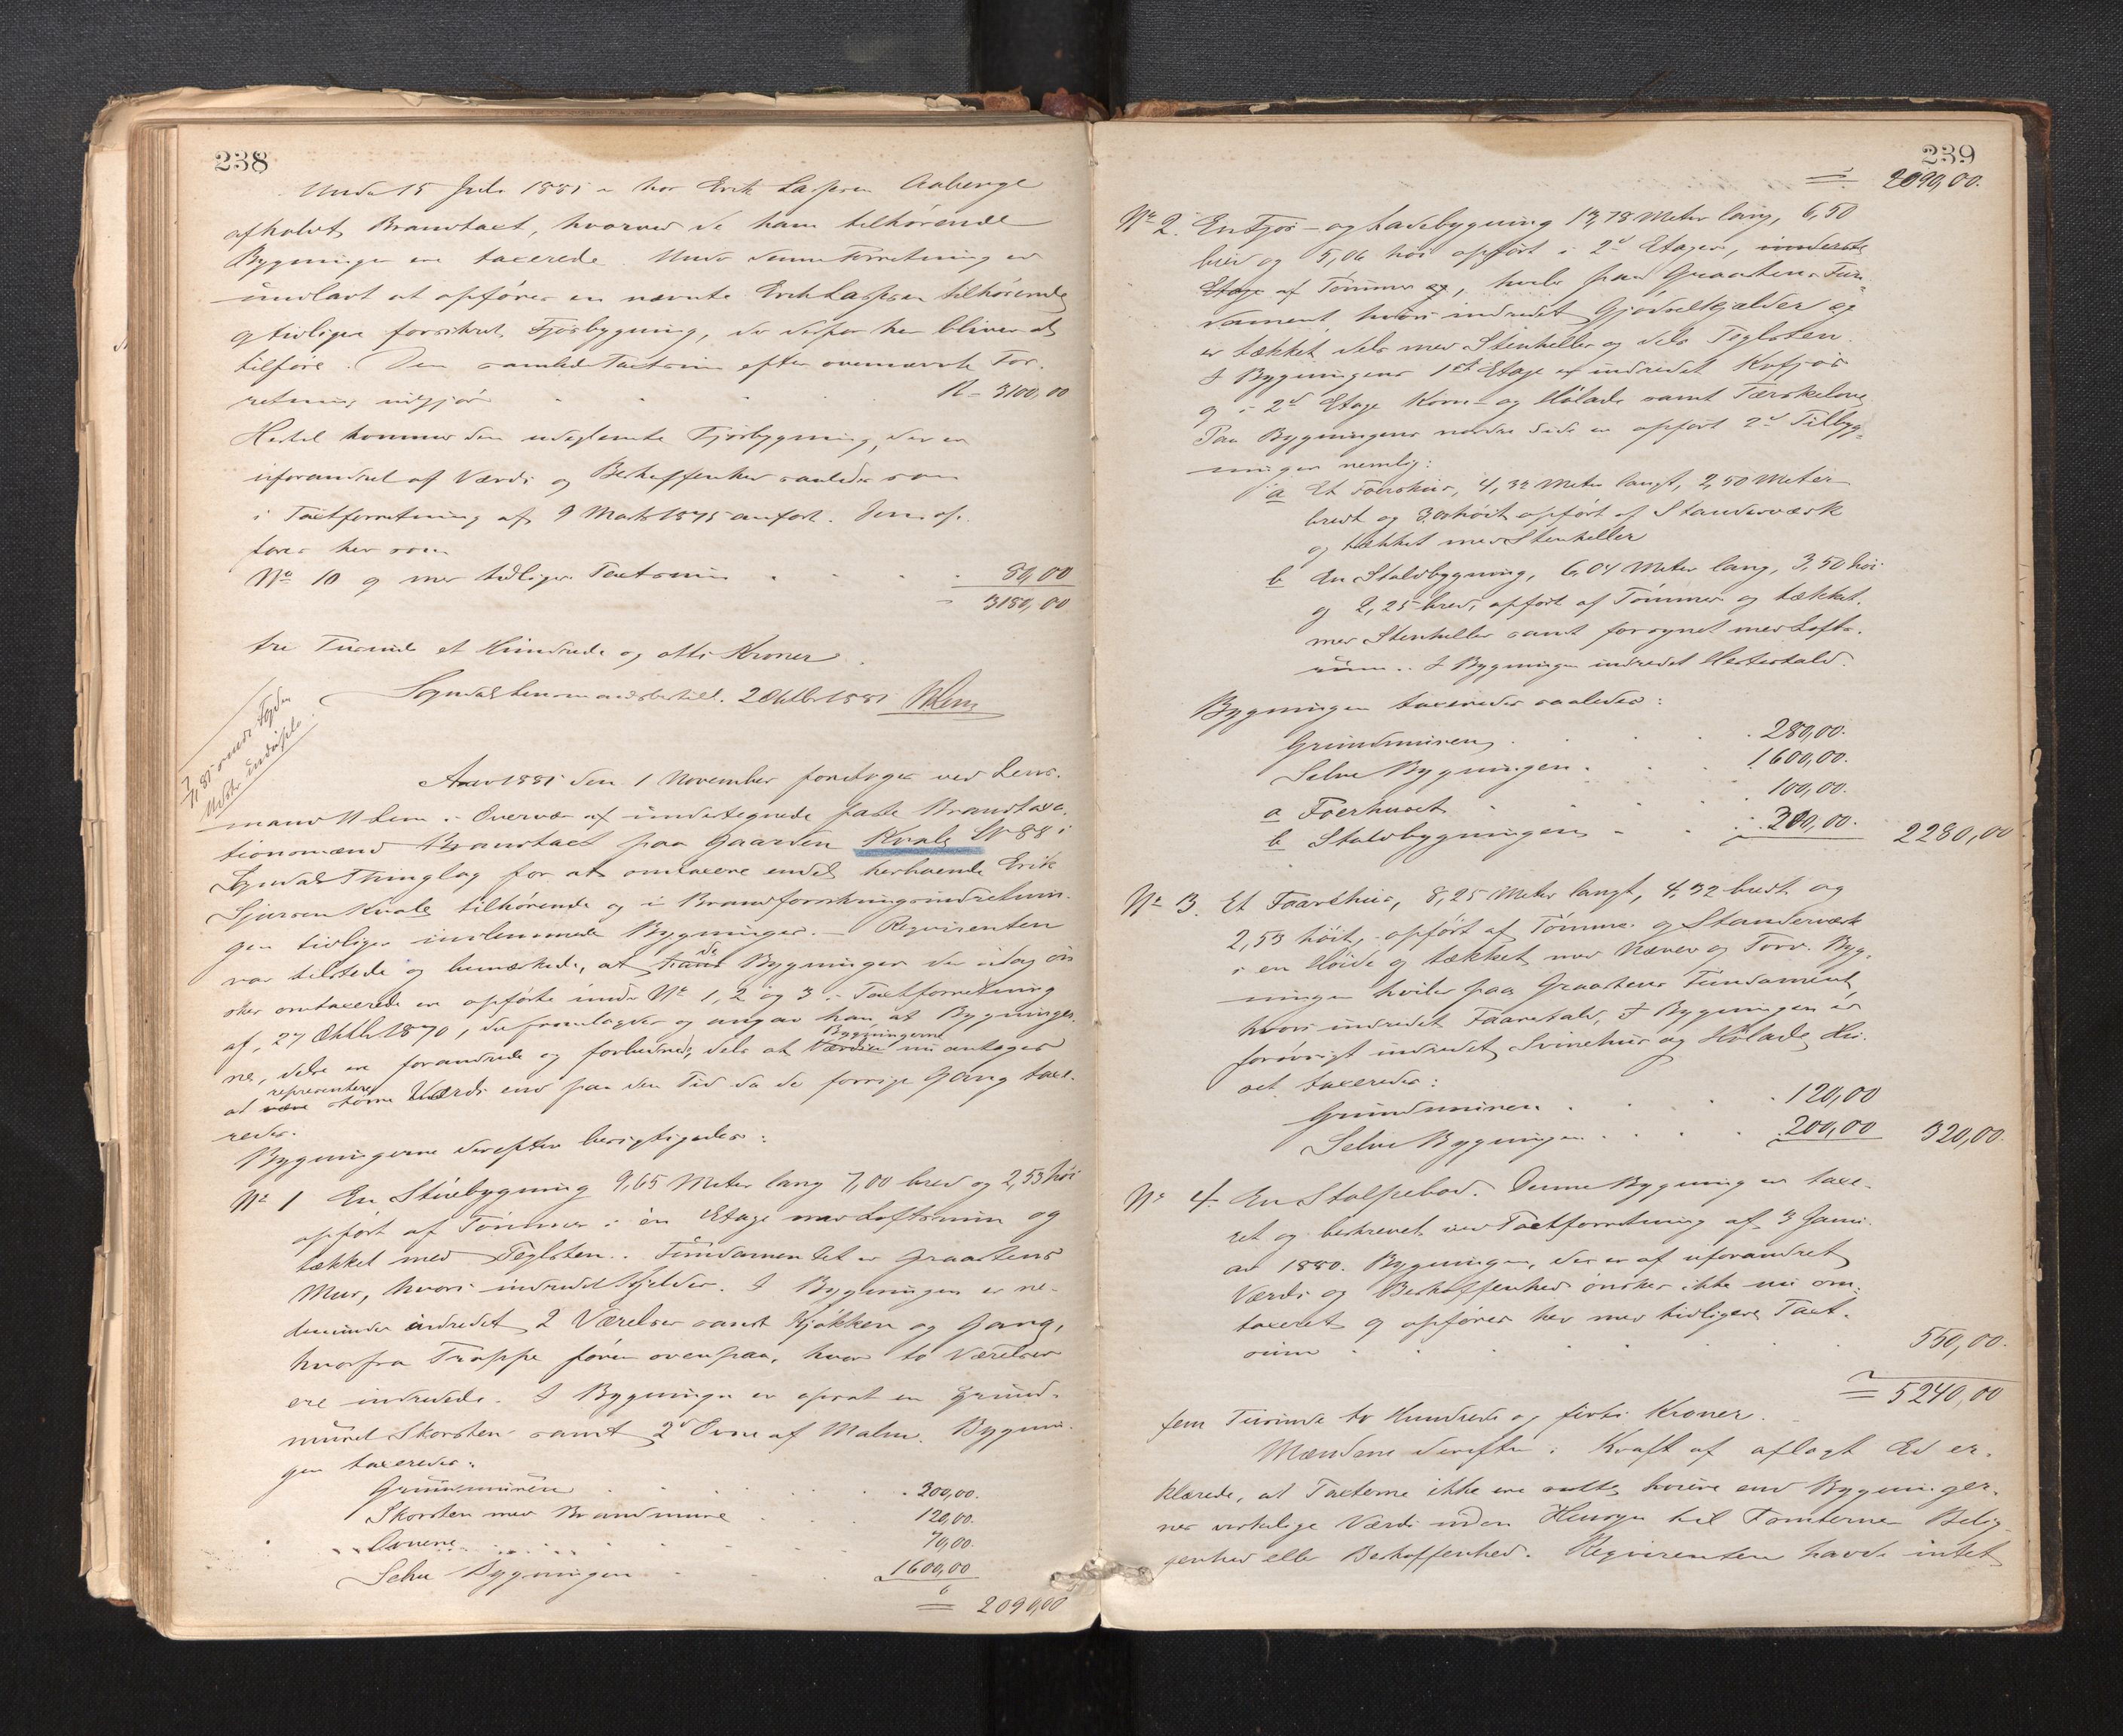 238
Under 15 Juli 1881 er hos Erik Larssen Aaberge
afholdt Brandtaxt, hvorved de ham tilhørende
Bygninger ere taxerede. Under denne Forretning er
undladt at opføres en nævnte Erik Larssen tilhørende
og tidligere forsikret Fjøsbygning, der derfor her bliver at
tilføre. Den samlede Taxtsum efter ovennævnte For-
retning udgjør . . . . . K - 3100,00
Hertil kommer den udeglemte Fjøsbygning, der er
uforandret af Værdi og Beskaffenhed saaledes som
i Taxtforretning af 9 Marts 1875 anført. Den op-
føres her som
No 10 og med tidligere Taxtsum . . . . 80,00
3180,00
tre Tusinde et Hundrede og otti Kroner.
Sogndal Lensmandsbestill. 2 Oktbr 1881 NLem
Aar 1881 den 1 November foretoges ved Lens-
mand N Lem i Overvær af undertegnede faste Brandtaxa-
tionsmænd Brandtaxt paa Gaarden Kvale LN 88 i
Sogndals Thinglag for at omtaxere endel herværende Erik
Sjursen Kvale tilhørende og i Brandforsikringsindretnin-
gen tidligere indlemmede Bygninger. - Reqvirenten
var tilstede og bemærkede, at hans de Bygninger der idag øn-
skes omtaxerede er opførte under No 1, 2 og 3 i Taxtforretning
af 27 Oktbr 1870, der fremlagdes og angav han at Bygninger-
ne, dels er forandrede og forbedrede, dels at Værdien Bygningerne nu antages
at være repræsentere større Værdi end paa den Tid da de forrige Gang taxe-
redes.
Bygningerne derefter besigtigedes:
No 1 En Stuebygning 9,65 Meter lang 7,00 bred og 2,53 høi
opført af Tømmer i en Etage med Loftsrum og
tækket med Teglsten. Fundamentet er Graastens
Mur, hvori indredet Kjelder. I Bygningen er ne-
denunder indredet 2 Værelser samt Kjøkken og Gang,
hvorfra Trappe fører ovenpaa, hvor to Værelser
ere indredede. I Bygningen er opsat en grund-
muret Skorsten samt 2de Ovne af Malm. Bygnin-
gen taxeredes:
Grundmuren . . . . . 300,00.
Skorsten med Brandmure . . . 120,00.
Ovnene . . . . . 70,00.
Selve Bygningen . . . . 1600,00
= 2090,00
239
= 2090,00.
No 2. En Fjøs- og Ladebygning 13,78 Meter lang, 6,50
bred og 5,06 høi opført i 2de Etager, underste
Etage af Tømmer og, hviler paa Graastens Fun-
dament hvori indredet Gjødselkjælder og
er tækket dels med Stenheller og dels Teglsten.
I Bygningens 1ste Etage er indredet Kofjøs
og i 2den Etage Korn- og Hølade samt Tærskelove.
Paa Bygningens nordre Side er opført 2de Tilbyg-
ninger nemlig:
a Et Foerhus, 4,32 Meter langt, 2,50 Meter
bredt og 3,00 høit opført af Standerværk
og tækket med Stenheller
b En Staldbygning, 6,04 Meter lang, 3,50 høi
og 2,25 bred, opført af Tømmer og tækket
med Stenheller samt forsynet med Lofts-
rum. I Bygningen indredet Hestestald.
Bygningen taxeredes saaledes:
Grundmuren . . . . 280,00.
Selve Bygningen . . . 1600,00.
a Foerhuset . . . . 100,00.
b Staldbygningen . . . 300,00. 2280,00
No 3. Et Faarehus, 8,25 Meter langt, 4,32 bredt og
2,53 høit, opført af Tømmer og Standerværk
i en Høide og tækket med Næver og Torv. Byg-
ningen hviler paa Graastens Fundament,
hvori indredet Faarestald, I Bygningen er
forøvrigt indredet Svinehus og Hølade, Hu-
set taxeredes:
Grundmuren . . . . 120,00
Selve Bygningen . . . . 200,00 320,00.
No 4. En Stolpebod. Denne Bygning er taxe-
ret og beskrevet ved Taxtforretning af 3 Janu-
ar 1880. Bygningen, der er af uforandret
Værdi og Beskaffenhed ønskes ikke nu om-
taxeret og opføres her med tidligere Taxt-
sum . . . . . . 550,00.
= 5240,00
fem Tusinde to Hundrede og firti Kroner.
Mændene derefter i Kraft af aflagt Ed er-
klærede, at Taxterne ikke ere satte høiere end Bygninger-
nes virkelige Værdi uden Hensyn til Tomternes Belig-
genhed eller Beskaffenhed. Reqvirenten havde intet